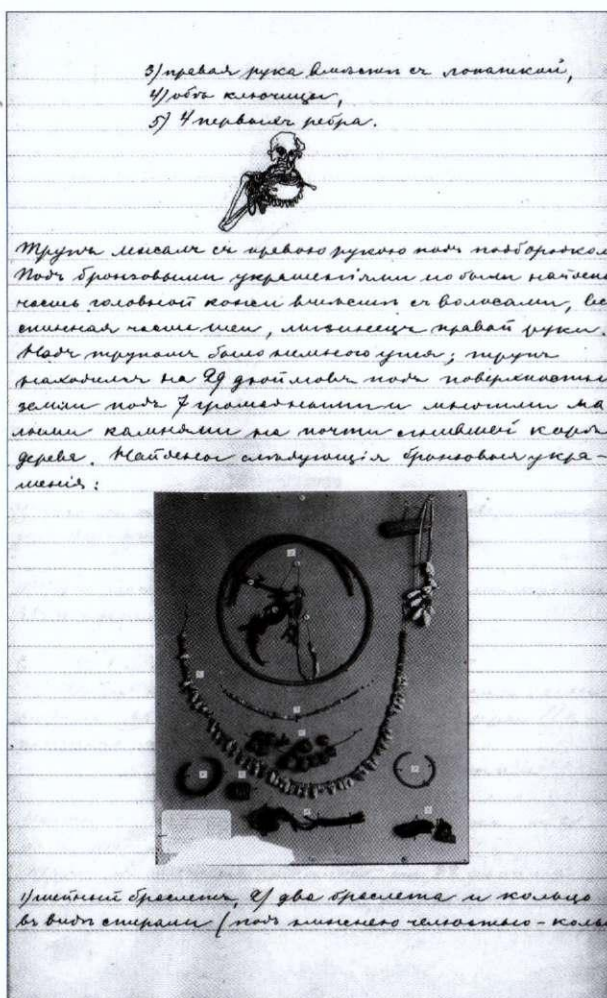 3) правая рука вмѣстѣ съ лопаткой,
4) обѣ ключицы,
5) 4 первыхъ ребра.
Трупъ лежалъ съ правою рукою подъ подбородком
Подъ бронзовыми украшеніями по были найдены
часть головной кожи вмѣстѣ съ волосами, вс
спинная часть шеи, мизинецъ правой руки.
Надъ трупомъ было немного угля; трупъ
находился на 29 дюймовъ подъ поверхностью
земли подъ 7 громадными и многими ма
лыми камнями на почти сгнившей коре
дерева. Найдены слѣдующія бронзовыя укра-
шенія:
1) шейный браслетъ, 2) два браслета и кольцо
въ видѣ спирали (подъ нижнею челюстью - коль